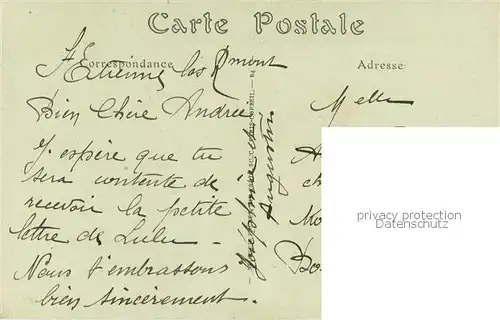 Carte Postale
Correspondance
Adresse
St Etienne las Remont
Bien Chère Andrée
J'espère que tu
sera contente de
recevoir la petite
lettre de Lulu -
Nous t'embrassons
bien sincèrement.
Joséphine
Augustin
Melle
A
ch
Mo
Bo
privacy protection
Datenschutz